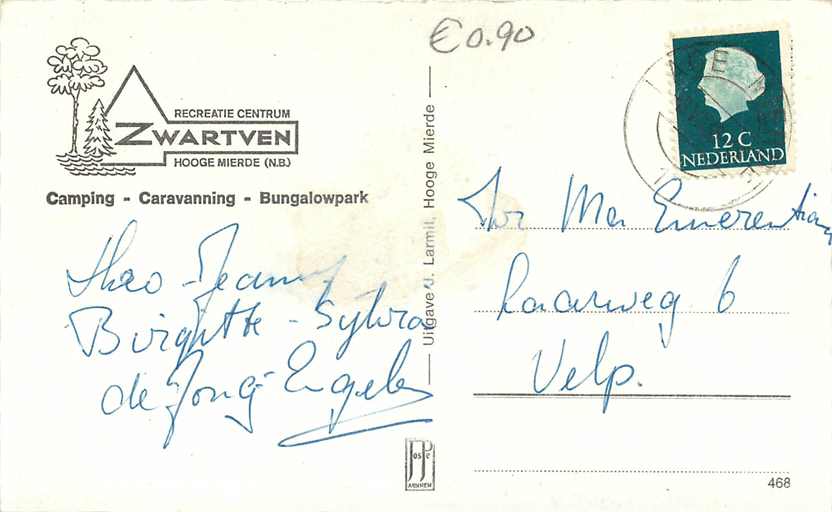 €0.90
RECREATIE CENTRUM
ZWARTVEN
HOOGE MIERDE (N.B.)
Camping - Caravanning - Bungalowpark
Theo - Jeanny
Birgitte - Sylvia
de Jong - Engels
Uitgave J. Larmit, Hooge Mierde
JOSPE
ARNHEM
12 C
NEDERLAND
Mer Emerentiana
Laarweg 6
Velp.
468